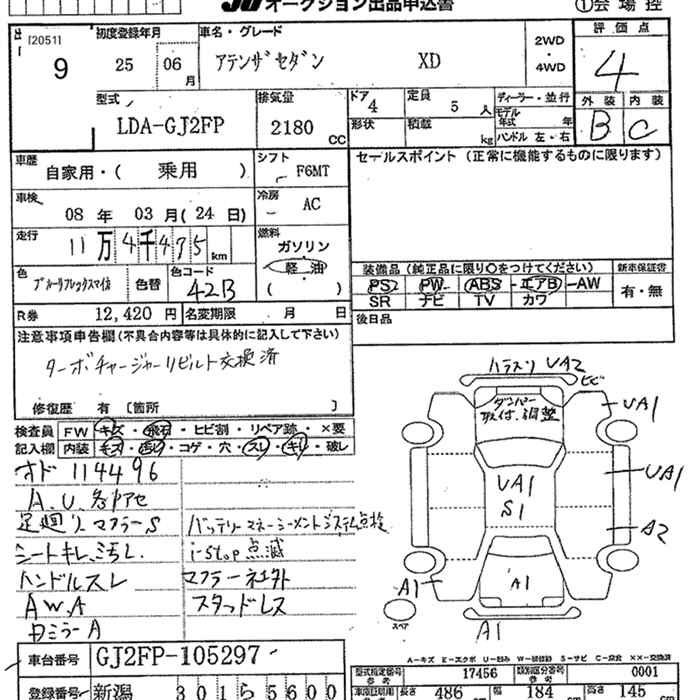 オークション出品申込書
①会場控
[2051]
9
初度登録年月
25 06 月
車名・グレード
アテンザセダン XD
2WD ・ 4WD
評価点
4
型式
LDA-GJ2FP
排気量
2180 CC
ドア 4
定員 5 人
形状
積載 kg
ディーラー・並行
モデル年式 年
ハンドル 左・右
外装 内装
B C
車歴
自家用・( 乗用 )
シフト
F6MT
車検
08 年 03 月(24 日)
冷房
AC
走行
11万4千475km
燃料
ガソリン
軽油
( )
色
ブルーリフレックスマイカ
色替
色コード
42B
R券 12,420 円
名変期限 月 日
セールスポイント(正常に機能するものに限ります)
装備品(純正品に限り○をつけてください)
PS・PW・ABS・エアB・AW
SR ナビ TV カワ
新車保証書
有・無
後日品
注意事項申告欄(不具合内容等は具体的に記入して下さい)
ターボチャージャーリビルト交換済
修復歴 有 〔箇所 〕
検査員記入欄
FW キズ・飛石・ヒビ割・リペア跡・×要
内装 キズ・汚レ・コゲ・穴・スレ・キレ・破レ
オド 114496
足廻リ マフラーS
シートキレ、汚レ
ハンドルスレ
AW.A
ミラーA
バッテリーマネージメントシステム点検
i-stop点滅
マフラー
スタッドレス
UA2
ヒビ
ダンパー
取付、調整
UA1
UA1
UA1
S1
A2
A1
A1
A1
スペア
車台番号 GJ2FP-105297
登録番号 新潟 301ら5600
A-キズ E-エクボ U-凹み W-補修跡 S-サビ C-腐食 ××-交換済
型式指定番号 参考 17456
類別区分番号 参考 0001
車両証明用 参考
長さ 486 幅 184 高さ 145